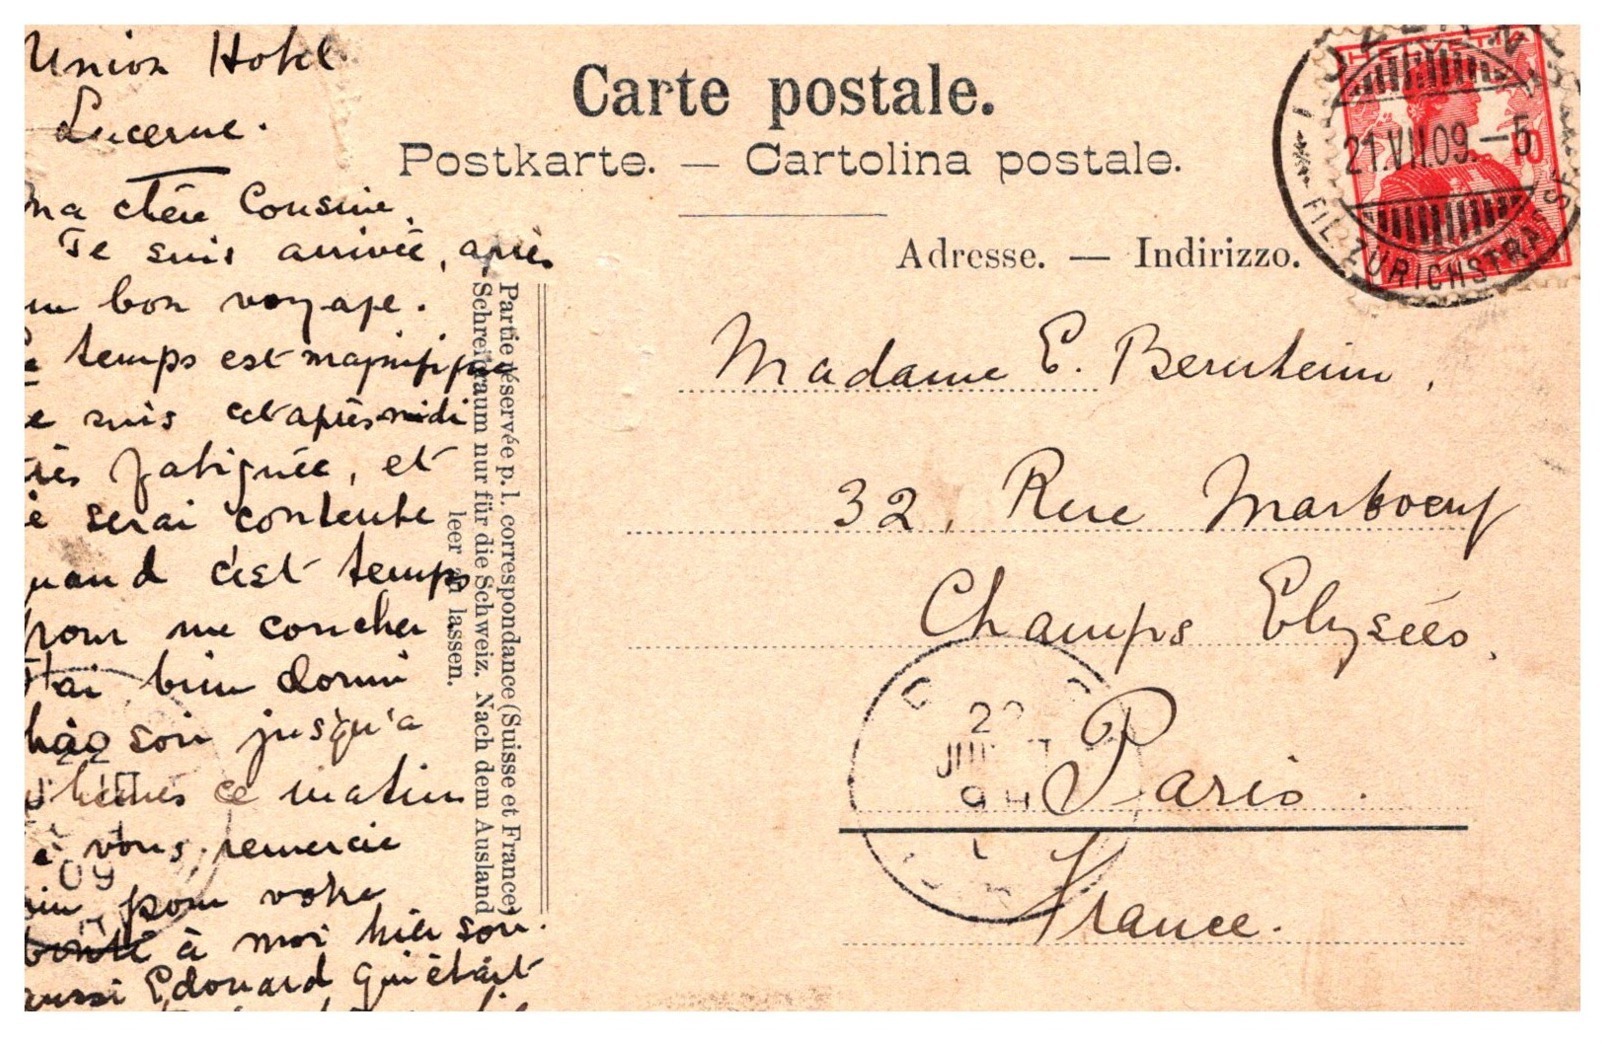 Union Hotel
Lucerne.
Ma chère Cousine,
Je suis arrivée, après
un bon voyage.
Le temps est magnifique
Je suis cet après midi
très fatiguée, et
je serai contente
quand c'est temps
pour me coucher
J'ai bien dormi
hier soir jusqu'a
heures ce matin
Je vous remercie
bien pour votre
bonté à moi hier soir.
aussi Edouard qui était
Carte postale.
Postkarte. — Cartolina postale.
Adresse. — Indirizzo.
Partie réservée p. l. correspondance (Suisse et France)
Schreibraum nur für die Schweiz. Nach dem Ausland
leer zu lassen.
HELVETIA
10
LUZERN
21.VII.09.–5
FIL. ZÜRICHSTRASSE
Madame E. Bernheim,
32, Rue Marboeuf
Champs Elysées,
Paris.
France.
22
09